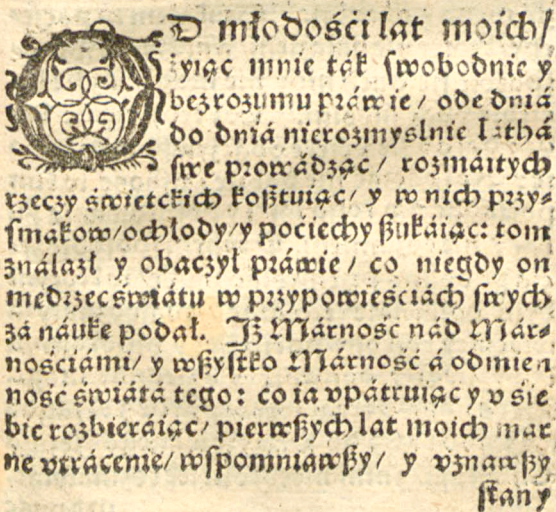 OD młodośći lat moich/
żyiąc mnie ták ſwobodnie y
bezrozumu práwie/ ode dniá
do dniá nierozmyslnie láthá
ſwe prowádząc/ rozmáitych
rzeczy świetckich koßtuiąc/ y w nich przy⸗
ſmakow/ochłody/y poćiechy ßukáiąc: tom
ználazł y obaczył práwie/ co niegdy on
medrzec świátu w przypowieśćiách ſwych
zá náuke podał. Iż Márność nád Már⸗
nośćiámi/ y wßyſtko Márność á odmien
ność świátá tego: co ia vpátruiąc y v śie
bie rozbieráiąc/ pierwßych lat moich mar
ne vtrácenie/ wſpomniawßy/ y vznawßy
ſtan y